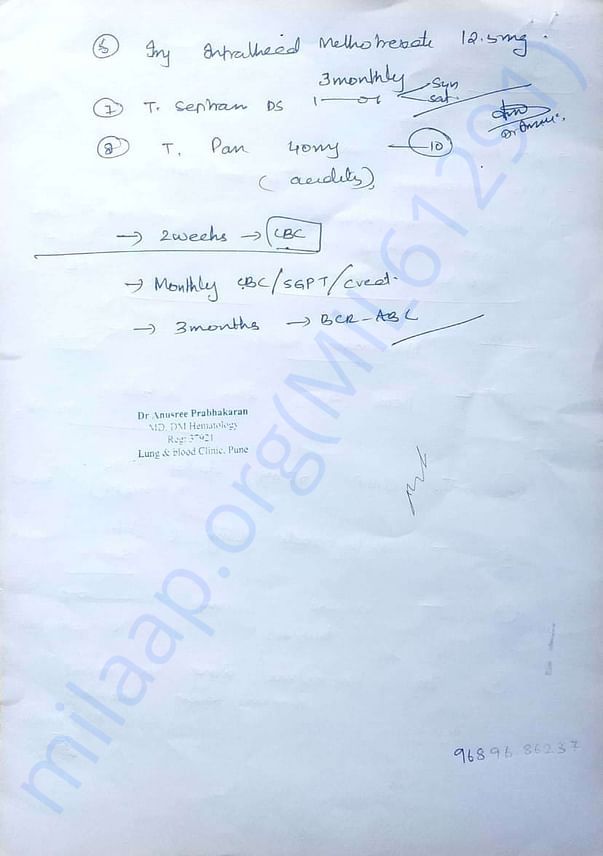 ⑤ Inj Intrathecal Methotrexate 12.5mg.
3monthly
⑦ T. Septran DS 1—0—1 Sun
Sat
⑧ T. Pan 40mg — 10
(acidity)
→ 2weeks → CBC
→ Monthly CBC/SGPT/Creat.
→ 3months → BCR-ABL
Dr Anusree Prabhakaran
MD. DM Hematology
Reg: 37921
Lung & Blood Clinic, Pune
96896 86237
milaap.org(MIL61291)